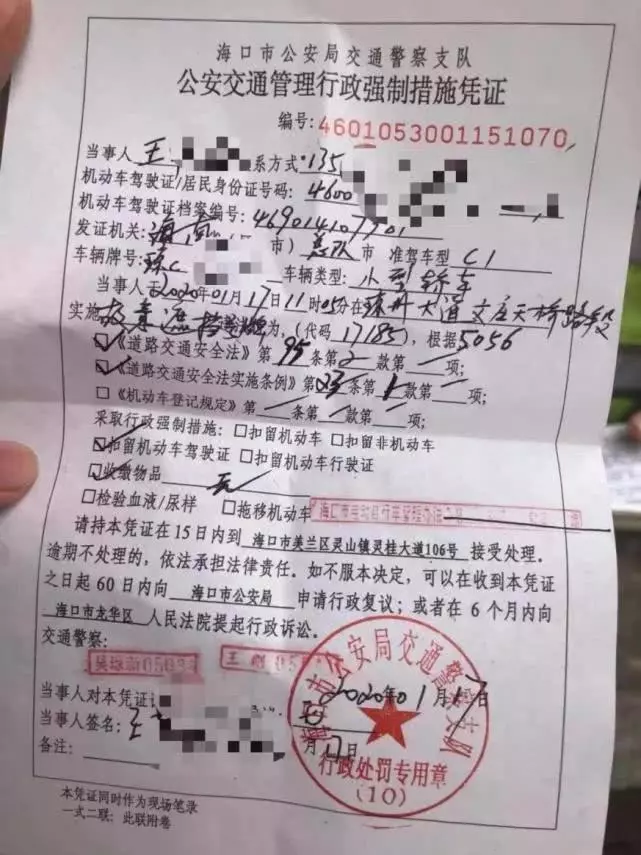 海口市公安局交通警察支队
公安交通管理行政强制措施凭证
编号:4601053001151070
当事人 王 系方式:135
机动车驾驶证/居民身份证号码:4600
机动车驾驶证档案编号:469014107701
发证机关:海南 市)总队市 准驾车型 C1
车辆牌号:琼C 车辆类型:小型轿车
当事人于2020年01月17日11时05分在琼州大道文庄天桥路段
实施故意遮挡号牌为,(代码17185),根据5056
☑《道路交通安全法》第95条第2款第一项;
☑《道路交通安全法实施条例》第23条第1款第一项;
□《机动车登记规定》第一条第一款第一项;
采取行政强制措施:□扣留机动车□扣留非机动车
☑扣留机动车驾驶证□扣留机动车行驶证
☑收缴物品 无
□检验血液/尿样 □拖移机动车
请持本凭证在15日内到 海口市美兰区灵山镇灵桂大道106号 接受处理。
逾期不处理的,依法承担法律责任。如不服本决定,可以在收到本凭证
之日起60日内向 海口市公安局 申请行政复议;或者在6个月内向
海口市龙华区 人民法院提起行政诉讼。
交通警察:
王刚05
当事人对本凭证 无 2020年01月17日
当事人签名:王 月17日
备注:
海口市公安局交通警察支队
行政处罚专用章
(10)
本凭证同时作为现场笔录
一式二联:此联附卷